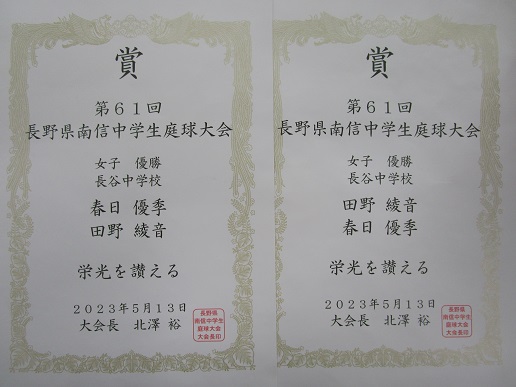 賞
第61回
長野県南信中学生庭球大会
女子 優勝
長谷中学校
春日 優季
田野 綾音
栄光を讃える
2023年5月13日
大会長 北澤 裕
長野県
南信中学生
庭球大会
大会長印
賞
第61回
長野県南信中学生庭球大会
女子 優勝
長谷中学校
田野 綾音
春日 優季
栄光を讃える
2023年5月13日
大会長 北澤 裕
長野県
南信中学生
庭球大会
大会長印